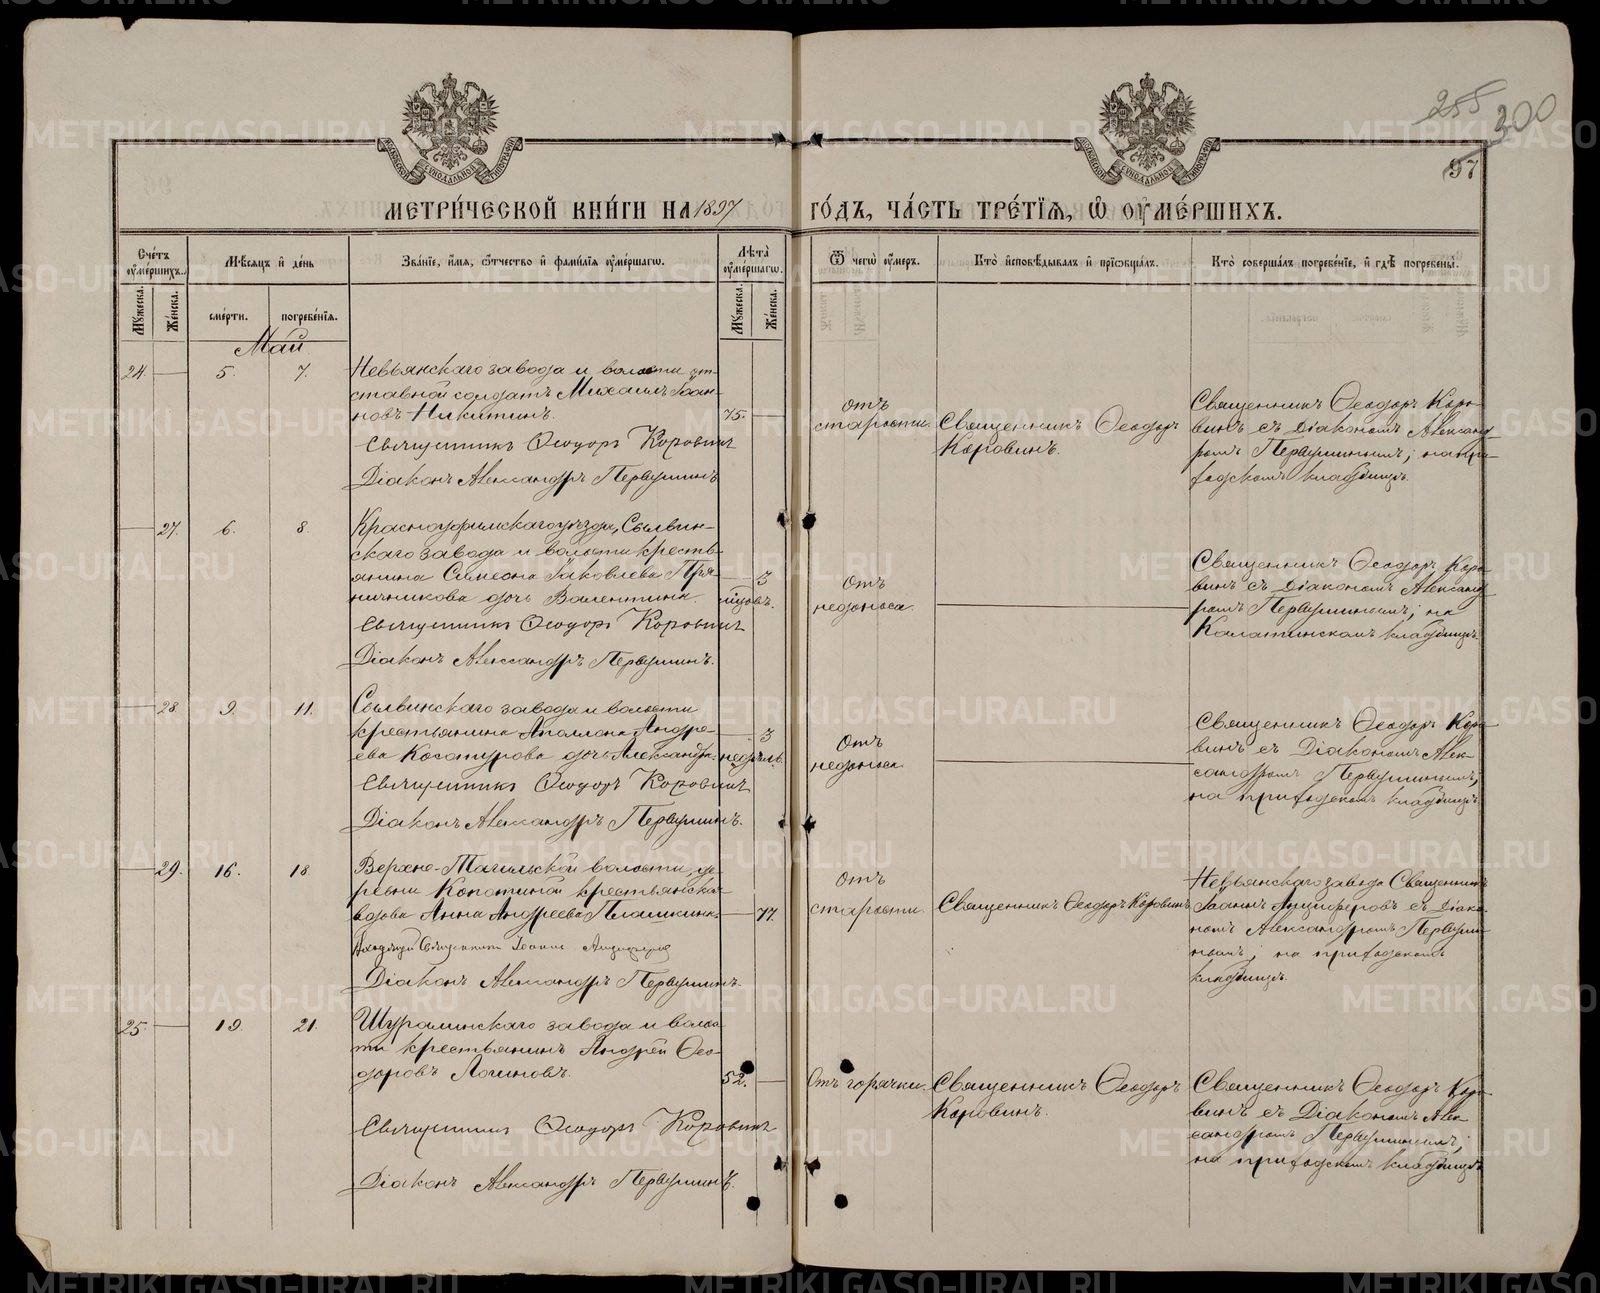 255 300
97
МЕТРИ́ЧЕСКОЙ КНИ́ГИ НА 1897 ГО́ДЪ, ЧА́СТЬ ТРЕ́ТІѦ, Ѽ ОУ҆МЕ́РШИХЪ.
Сче́тъ оу҆ме́ршихъ.
Мѣ́сѧцъ и҆ де́нь
Зва́нїе, и҆́мѧ, ѻ҆́тчество и҆ фами́лїѧ оу҆ме́ршагѡ.
Лѣ́та оу҆ме́ршагѡ.
Ѿ чегѡ̀ оу҆́меръ.
Кто̀ и҆сповѣ́дывалъ и҆ прїѡбща́лъ.
Кто̀ соверша́лъ погребе́нїе, и҆ гдѣ̀ погребены̀.
Мꙋ́жеска.
Же́нска.
сме́рти.
погребе́нїѧ.
Мꙋ́жеска.
Же́нска.
Май
24. 5. 7.
Невьянскаго завода и волости от-
ставной солдатъ Михаилъ Іоан-
новъ Никитинъ.
75.
Священникъ Ѳеодоръ Коровинъ
Діаконъ Александръ Первушинъ
отъ
старости.
Священникъ Ѳеодоръ
Коровинъ.
Священникъ Ѳеодоръ Коро-
винъ съ Діакономъ Александ-
ромъ Первушинымъ; на при-
ходскомъ кладбищѣ.
27. 6. 8.
Красноуфимскаго уѣзда, Сылвин-
скаго завода и волости кресть-
янина Симеона Іаковлева Пря-
ничникова дочь Валентина.
3
мѣсяц.
Священникъ Ѳеодоръ Коровинъ
Діаконъ Александръ Первушинъ.
Отъ
недоноса.
Священникъ Ѳеодоръ Коро-
винъ съ Діакономъ Александ-
ромъ Первушинымъ; на
Калатинскомъ кладбищѣ.
28. 9. 11.
Сылвинскаго завода и волости
крестьянина Аполлона Андре-
ева Косотурова дочь Александра.
3
недѣль.
Священникъ Ѳеодоръ Коровинъ
Діаконъ Александръ Первушинъ.
Отъ
недоноса.
Священникъ Ѳеодоръ Коро-
винъ съ Діакономъ Алек-
сандромъ Первушинымъ;
на приходскомъ кладбищѣ.
29. 16. 18
Верхне-Тагильской волости, де-
ревни Копотиной крестьянская
вдова Анна Андреева Плашкина
77.
Священникъ Іоаннъ
Діаконъ Александръ Первушинъ.
Отъ
старости.
Священникъ Ѳеодоръ Коровинъ
Невьянскаго завода Священникъ
Іоаннъ Луциферовъ съ Діако-
номъ Александромъ Первушин-
нымъ; на приходскомъ
кладбищѣ.
25. 19. 21.
Шуралинскаго завода и волос-
ти крестьянинъ Андрей Ѳео-
доровъ Логиновъ.
52.
Священникъ Ѳеодоръ Коровинъ
Діаконъ Александръ Первушинъ.
Отъ горячки.
Священникъ Ѳеодоръ
Коровинъ.
Священникъ Ѳеодоръ Коро-
винъ съ Діакономъ Алек-
сандромъ Первушинымъ;
на приходскомъ кладбищѣ
METRIKI.GASO-URAL.RU